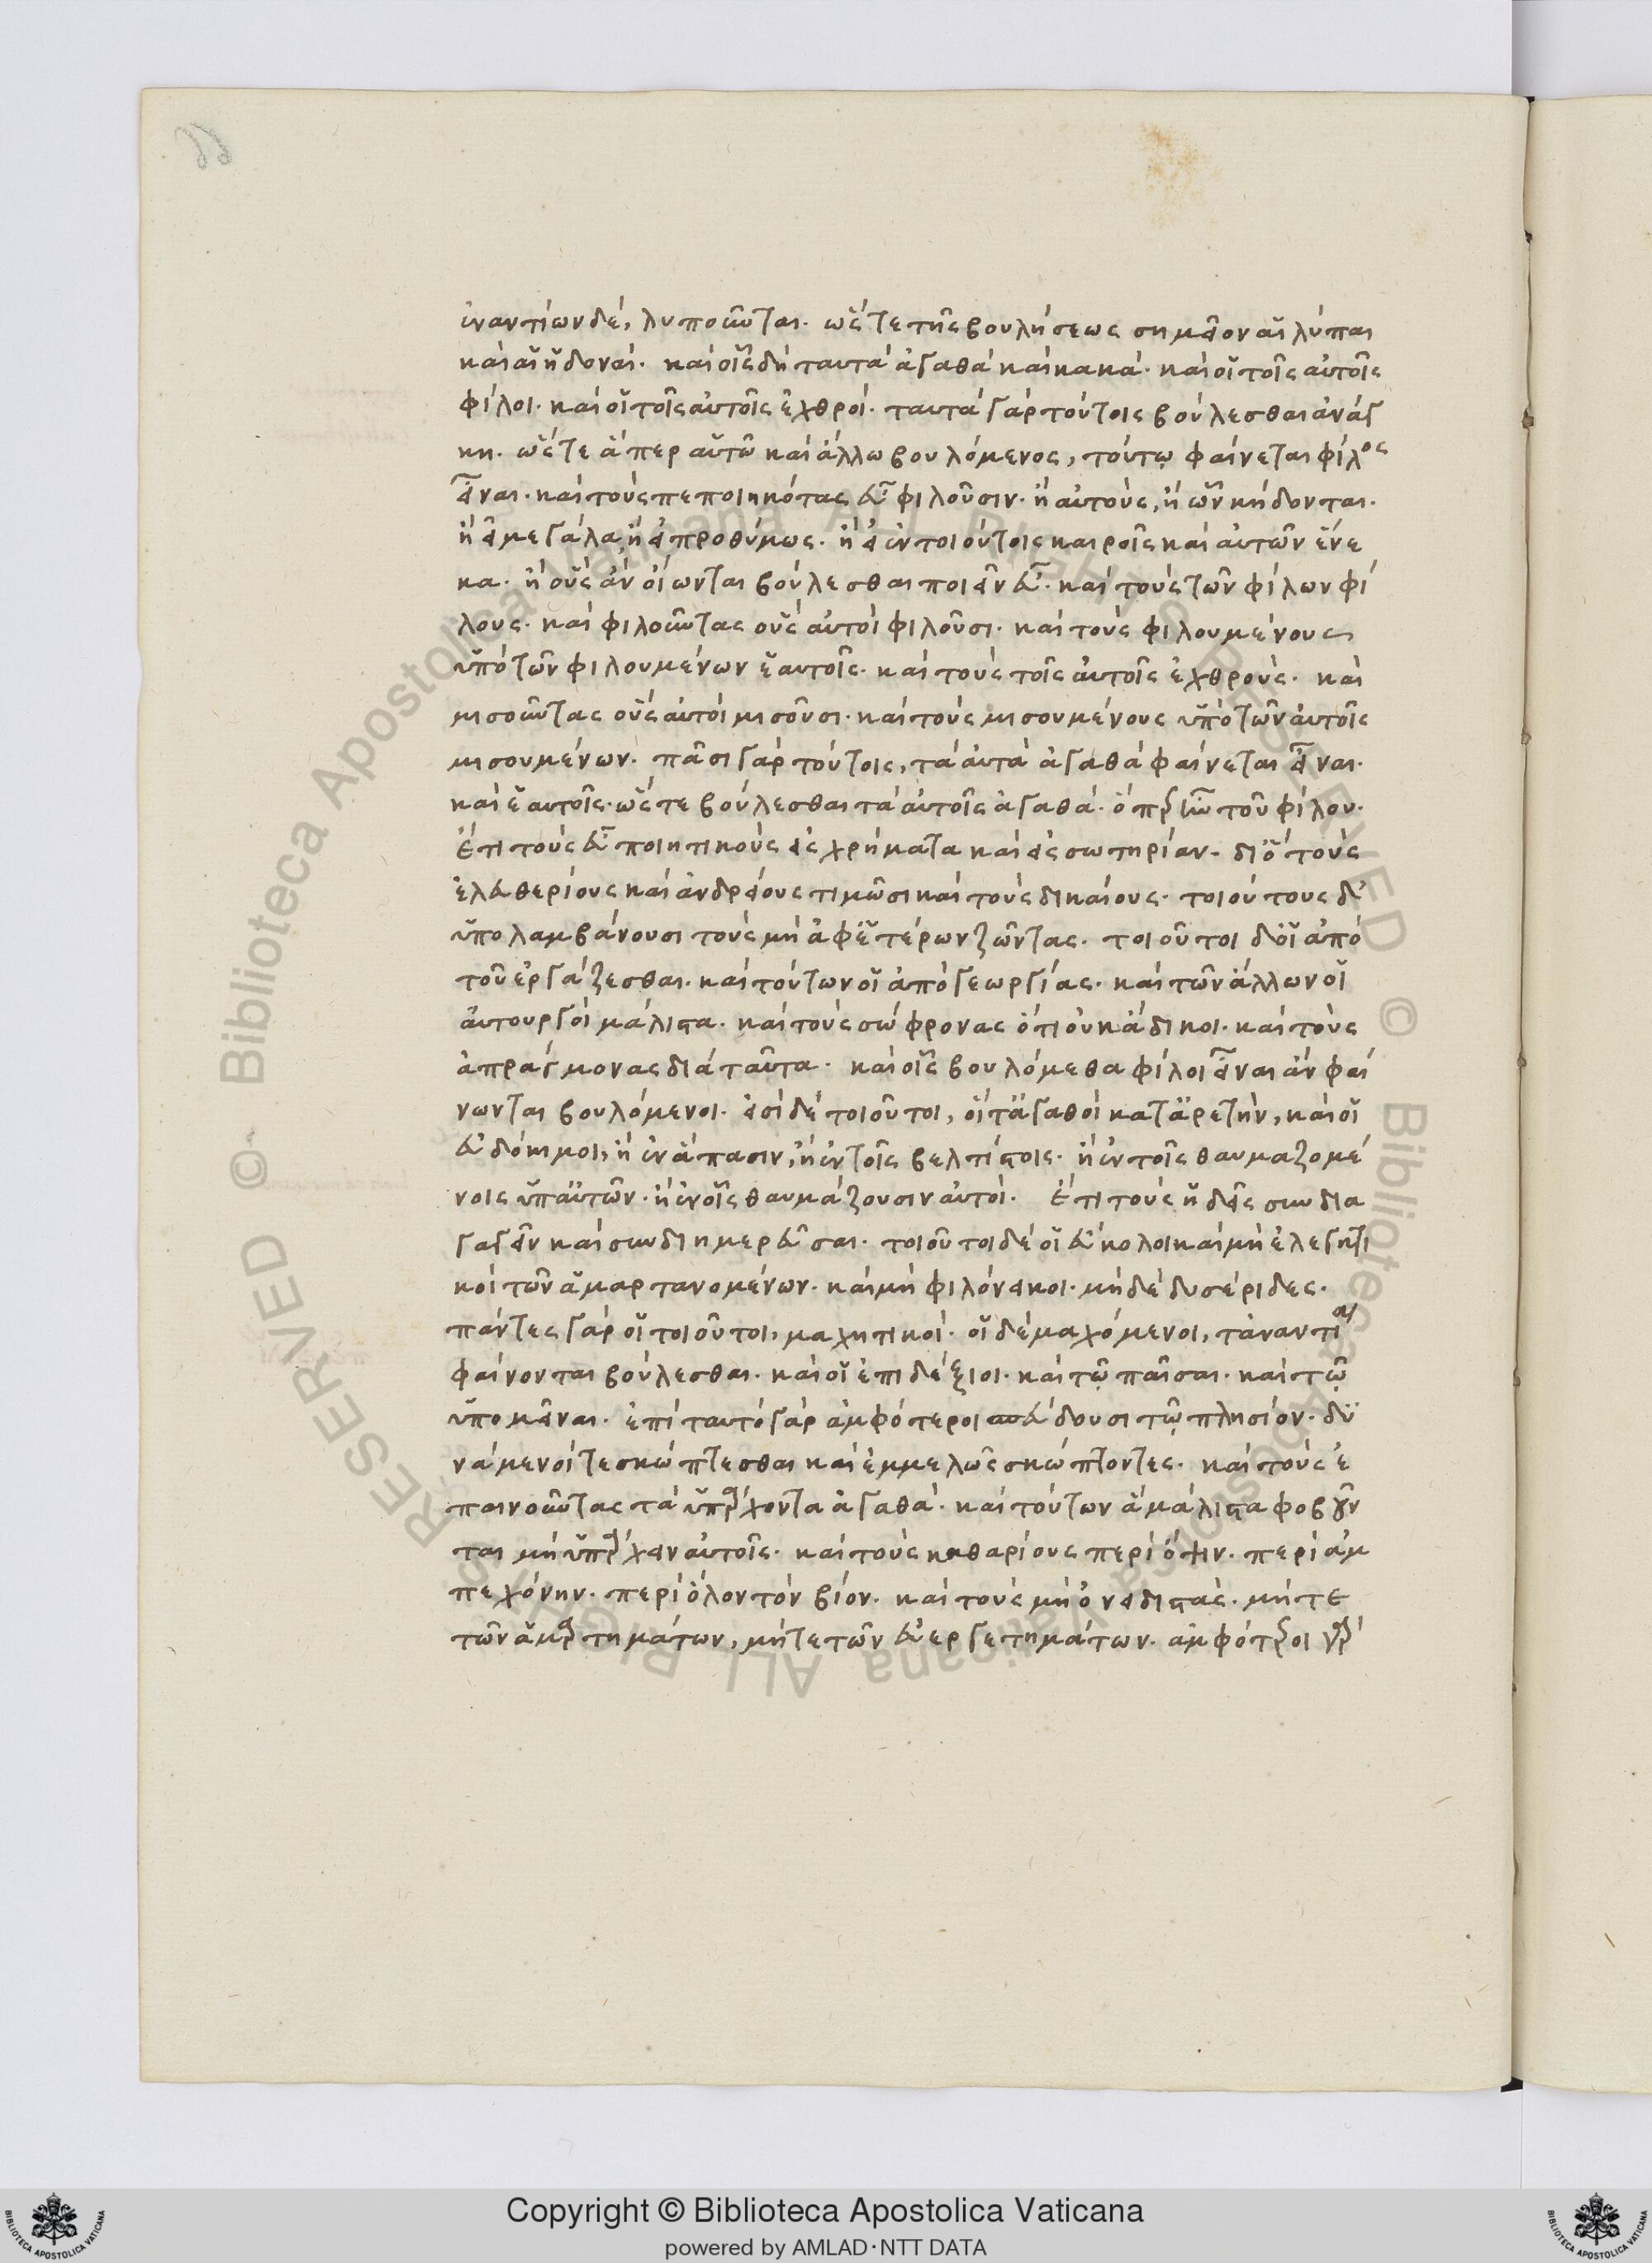 ἐναντίων δέ, λυποῦνται. ὥστε τῆς βουλήσεως σημεῖον αἱ λύπαι
καὶ αἱ ἡδοναί. καὶ οἷς δὴ ταυτὰ ἀγαθὰ καὶ κακά. καὶ οἱ τοῖς αὐτοῖς
φίλοι. καὶ οἱ τοῖς αὐτοῖς ἐχθροί. ταυτὰ γὰρ τούτοις βούλεσθαι ἀνάγ
κη. ὥστε ἅπερ αὑτῶ καὶ ἄλλω βουλόμενος, τούτῳ φαίνεται φίλος
εἶναι. καὶ τοὺς πεποιηκότας εὖ φιλοῦσιν. ἢ αὐτοὺς, ἢ ὧν κήδονται.
ἢ εἰ μεγάλα, ἢ εἰ προθύμως. ἢ εἰ ἐν τοιούτοις καιροῖς καὶ αὐτῶν ἕνε
κα. ἢ οὓς ἂν οἴωνται βούλεσθαι ποιεῖν εὖ. καὶ τοὺς τῶν φίλων φί
λους. καὶ φιλοῦντας οὓς αὐτοὶ φιλοῦσι. καὶ τοὺς φιλουμένους
ὑπὸ τῶν φιλουμένων ἑαυτοῖς. καὶ τοὺς τοῖς αὐτοῖς ἐχθρούς. καὶ
μισοῦντας οὓς αὐτοὶ μισοῦσι. καὶ τοὺς μισουμένους ὑπὸ τῶν αὐτοῖς
μισουμένων. πᾶσι γὰρ τούτοις, τὰ αὐτὰ ἀγαθὰ φαίνεται εἶναι.
καὶ ἑαυτοῖς. ὥστε βούλεσθαι τὰ αὐτοῖς ἀγαθά. ὅπερ ἦν τοῦ φίλου.
ἔτι τοὺς εὖ ποιητικοὺς εἰς χρήματα καὶ εἰς σωτηρίαν. διὸ τοὺς
ἐλευθερίους καὶ ἀνδρείους τιμῶσι καὶ τοὺς δικαίους. τοιούτους δ'
ὑπολαμβάνουσι τοὺς μὴ ἀφ' ἑτέρων ζῶντας. τοιοῦτοι δ' οἱ ἀπὸ
τοῦ ἐργάζεσθαι. καὶ τούτων οἱ ἀπὸ γεωργίας. καὶ τῶν ἄλλων οἱ
αὐτουργοὶ μάλιστα. καὶ τοὺς σώφρονας ὅτι οὐκ ἄδικοι. καὶ τοὺς
ἀπράγμονας διὰ ταῦτα. καὶ οἷς βουλόμεθα φίλοι εἶναι ἂν φαί
νωνται βουλόμενοι. εἰσὶ δὲ τοιοῦτοι, οἵ τ' ἀγαθοὶ κατ' ἀρετὴν, καὶ οἱ
εὐδόκιμοι, ἢ ἐν ἅπασιν, ἢ ἐν τοῖς βελτίστοις. ἢ ἐν τοῖς θαυμαζομέ
νοις ὑπ' αὐτῶν. ἢ ἐν οἷς θαυμάζουσιν αὐτοί. ἔτι τοὺς ἡδεῖς συνδια
γαγεῖν καὶ συνδιημερεῦσαι. τοιοῦτοι δὲ οἱ εὔκολοι καὶ μὴ ἐλεγητι
κοὶ τῶν ἁμαρτανομένων. καὶ μὴ φιλόνεικοι. μηδὲ δυσέριδες.
πάντες γὰρ οἱ τοιοῦτοι, μαχητικοί. οἱ δὲ μαχόμενοι, τἀναντία
φαίνονται βούλεσθαι. καὶ οἱ ἐπιδέξιοι. καὶ τῷ παῖσαι. καὶ τῷ
ὑπομεῖναι. ἐπὶ ταυτὸ γὰρ ἀμφότεροι σπεύδουσι τῷ πλησίον. δυ
νάμενοί τε σκώπτεσθαι καὶ ἐμμελῶς σκώπτοντες. καὶ τοὺς ἐ
παινοῦντας τὰ ὑπάρχοντα ἀγαθά. καὶ τούτων ἃ μάλιστα φοβοῦν
ται μὴ ὑπάρχειν αὐτοῖς. καὶ τοὺς καθαρίους περὶ ὄψιν. περὶ ἀμ
πεχόνην. περὶ ὅλον τὸν βίον. καὶ τοὺς μὴ ὀνειδιστάς. μήτε
τῶν ἁμαρτημάτων, μήτε τῶν εὐεργετημάτων. ἀμφότεροι γὰρ
Copyright © Biblioteca Apostolica Vaticana
powered by AMLAD·NTT DATA